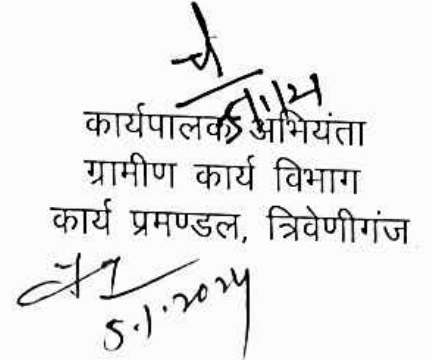 कार्यपालक अभियंता
ग्रामीण कार्य विभाग
कार्य प्रमण्डल, त्रिवेणीगंज
5.1.2024